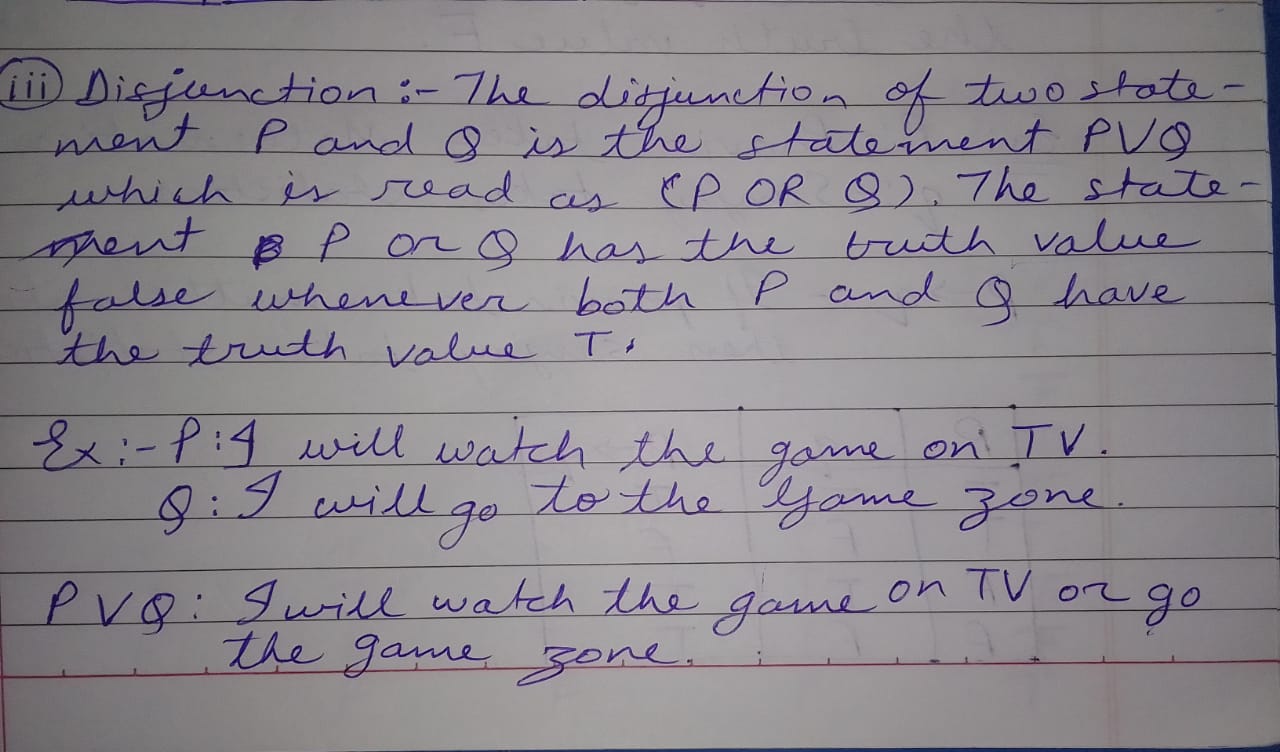 (iii) Disjunction :- The disjunction of two state-
ment P and Q is the statement PVQ
which is read as (P OR Q). The state-
ment P or Q has the truth value
false whenever both P and Q have
the truth value T.
Ex :- P : I will watch the game on TV.
Q : I will go to the Game zone.
PVQ : I will watch the game on TV or go
the game zone.